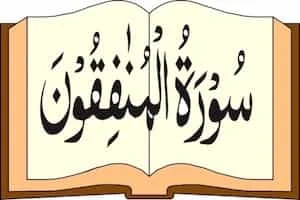 سُورَةُ الْمُنٰفِقُونَ